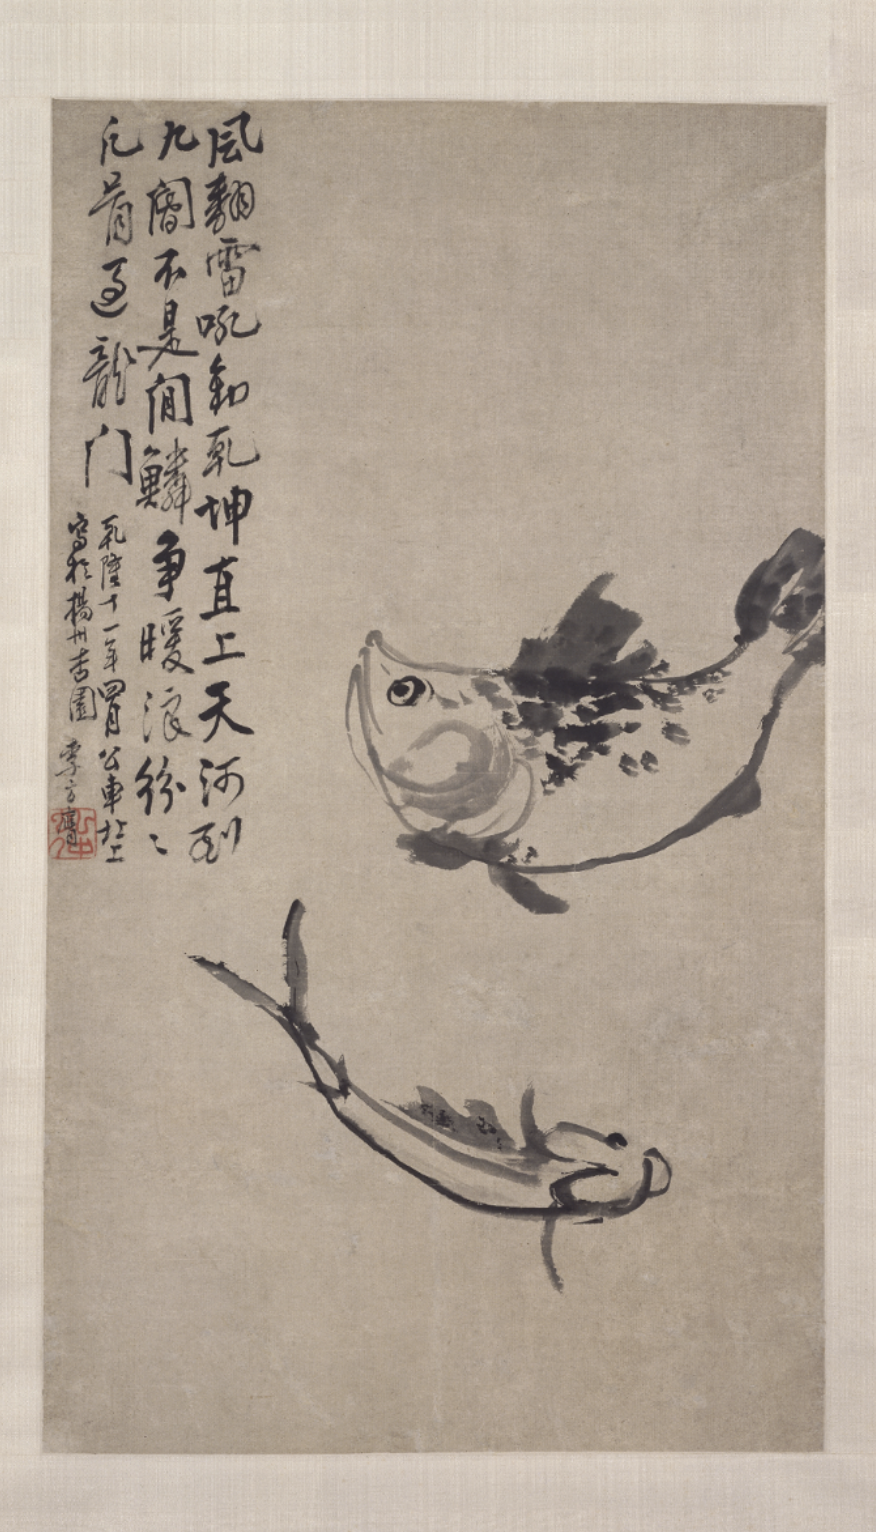 風翻雷吼動乾坤直上天河到
九閽不是閒鱗爭暖浪紛〻
凡骨過龍门
乾隆十一年四月公車北上
寫於揚州杏園 李方膺